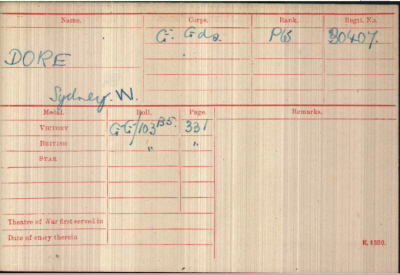 Name. Corps. Rank. Regtl. No.
DORE G. Gds. Pte 30407.
Sydney. W.
Medal. Roll. Page. Remarks.
VICTORY GG/103 B5. 331
BRITISH " "
STAR
Theatre of War first served in
Date of entry therein
K. 1380.